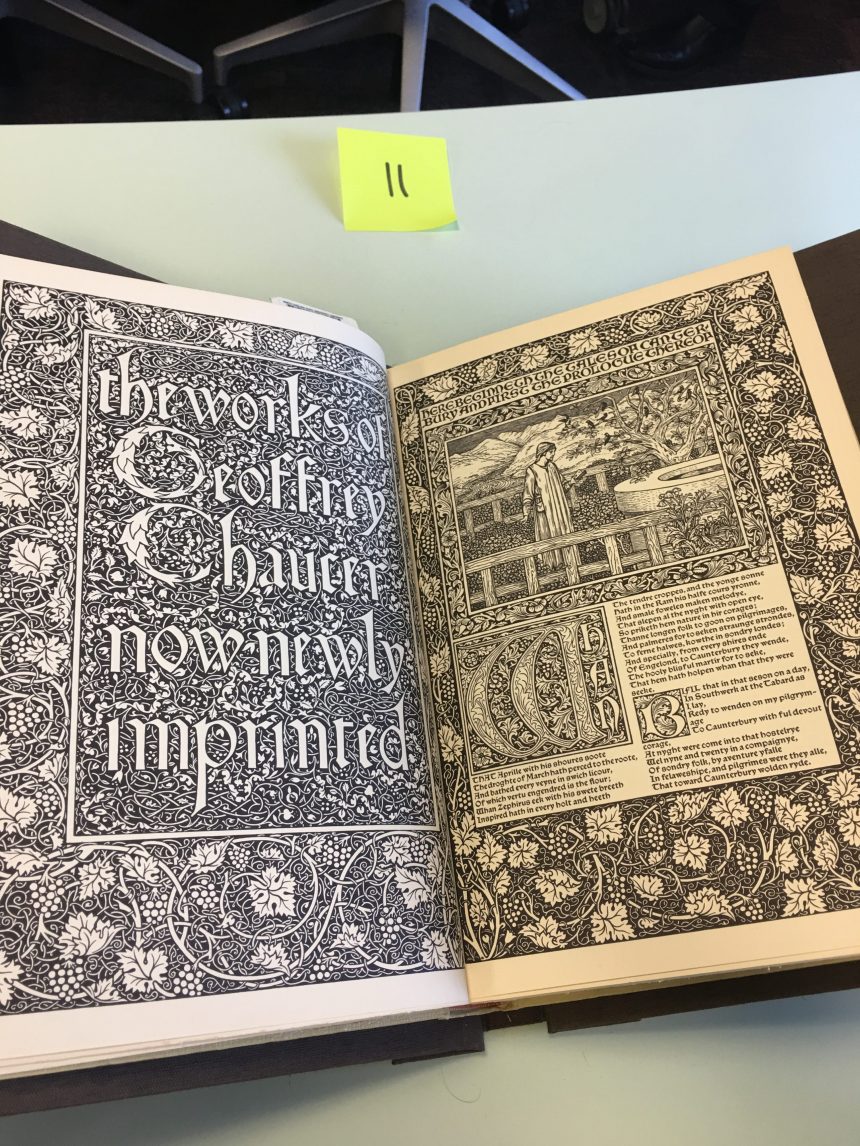 11
the works of
Geoffrey
Chaucer
now newly
imprinted
HERE BEGINNETH THE TALES OF CANTER
BURY AND FIRST THE PROLOGUE THEREOF
WHAN
THAT Aprille with his shoures soote
The droghte of March hath perced to the roote,
And bathed every veyne in swich licour,
Of which vertu engendred is the flour;
Whan Zephirus eek with his swete breeth
Inspired hath in every holt and heeth
The tendre croppes, and the yonge sonne
Hath in the Ram his halfe cours yronne,
And smale foweles maken melodye,
That slepen al the nyght with open eye,
So priketh hem nature in hir corages;
Thanne longen folk to goon on pilgrimages,
And palmeres for to seken straunge strondes,
To ferne halwes, kowthe in sondry londes;
And specially, from every shires ende
Of Engelond, to Caunterbury they wende,
The hooly blisful martir for to seke,
That hem hath holpen whan that they were
seeke.
BIFIL that in that seson on a day,
In Southwerk at the Tabard as
I lay,
Redy to wenden on my pilgrym-
age
To Caunterbury with ful devout
corage,
At nyght were come into that hostelrye
Wel nyne and twenty in a compaignye,
Of sondry folk, by aventure yfalle
In felaweshipe, and pilgrimes were they alle,
That toward Caunterbury wolden ryde.